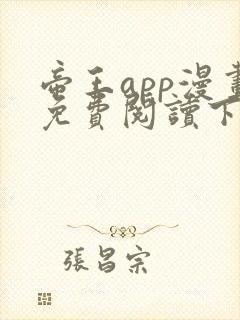 帝王app漫畫
免費閱讀下
張昌宗